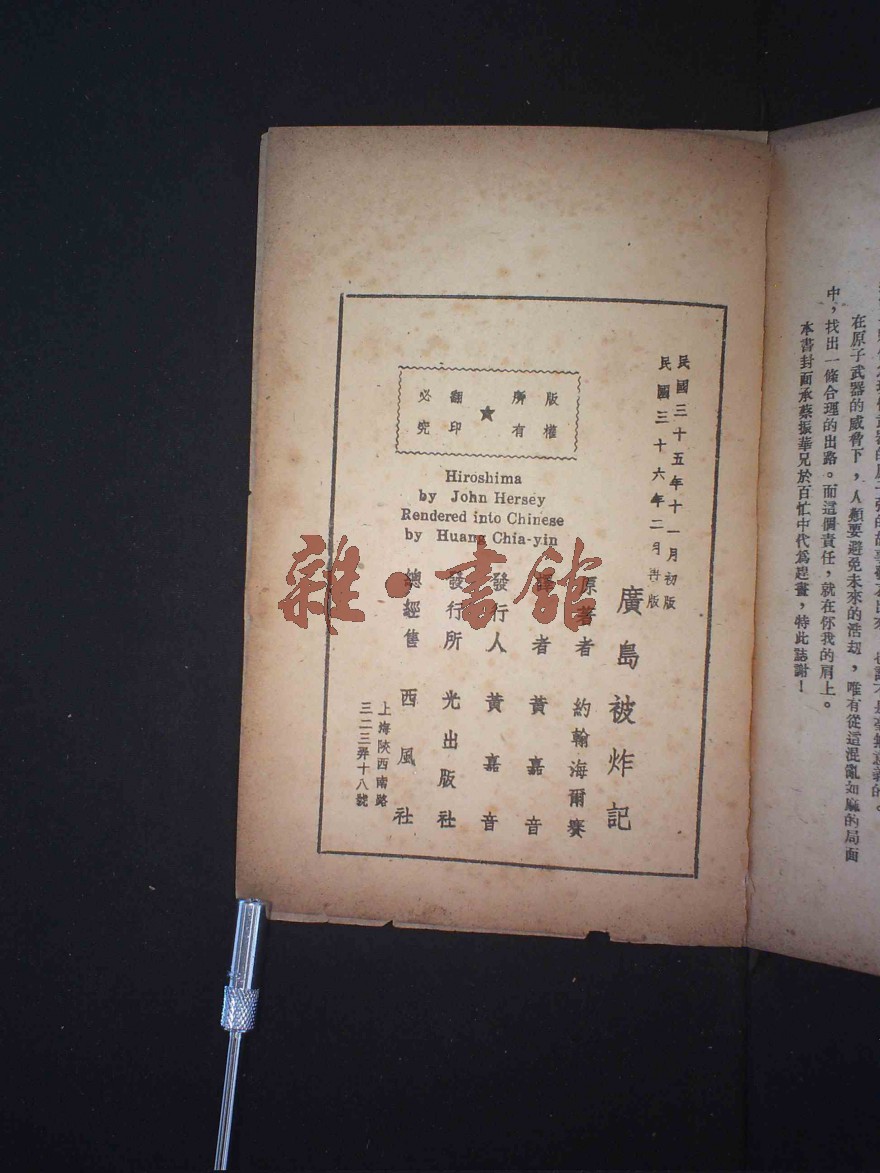 在原子武器的威脅下，人類要避免未來的浩刼，唯有從這混亂如麻的局面
中，找出一條合理的出路。而這個責任，就在你我的肩上。
本書封面承蔡振華兄於百忙中代爲趕畫，特此誌謝！
民國三十五年十一月初版
民國三十六年二月再版
廣島被炸記
原著者 約翰海爾賽
譯者 黃嘉音
發行人 黃嘉音
發行所 光出版社
總經售 西風社
上海陝西南路
三二三弄十八號
版權
所有
★
翻印
必究
Hiroshima
by John Hersey
Rendered into Chinese
by Huang Chia-yin
雜·書館